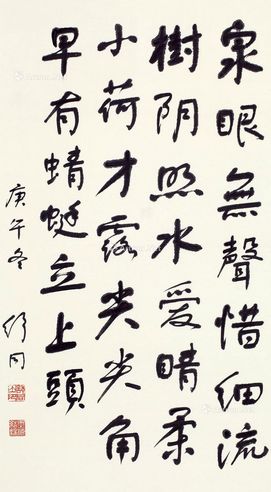 泉眼無聲惜細流
樹阴照水愛晴柔
小荷才露尖尖角
早有蜻蜓立上頭
庚午冬
舒同